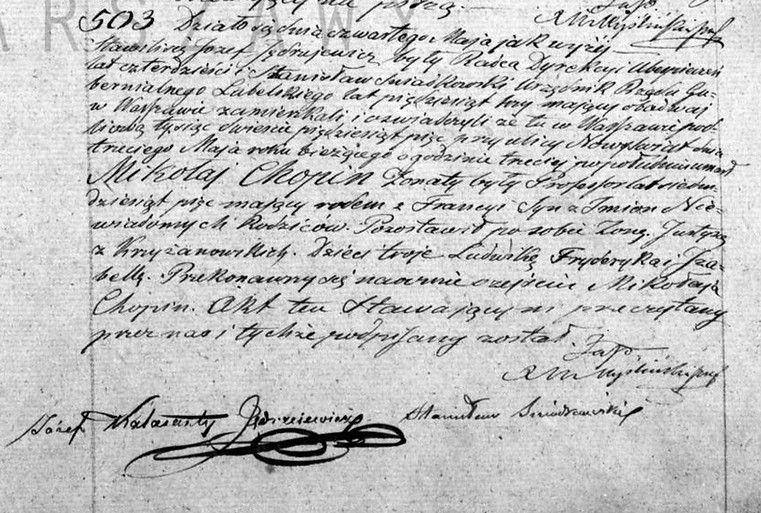 503 Działo się dnia czwartego Maja jak wyżej
Stawili się Józef Jędrzejewicz były Radca Dyrekcyi Ubezpieczeń
lat czterdzieści i Stanisław Świątkowski Urzędnik Rządu Gu-
bernialnego Lubelskiego lat pięćdziesiąt trzy mający obadwaj
w Warszawie zamieszkali, i oświadczyli że tu w Warszawie pod
liczbą tysiąc dwieście pięćdziesiąt pięć przy ulicy Nowy świat dnia
trzeciego Maja roku bieżącego o godzinie trzeciej po południu umarł
Mikołaj Chopin Żonaty były Professor lat siedm-
dziesiąt pięć mający rodem z Francyi Syn z Imion Nie-
wiadomych Rodziców. Pozostawił po sobie Żonę Justynę
z Krzyżanowskich. Dzieci troje Ludwikę Fryderyka i Iza-
bellę. Przekonawszy się naocznie o zejściu Mikołaja
Chopin. Akt ten Stawającym przeczytany
przez nas i tychże podpisany został.
Józef Kalasanty Jędrzeiewicz Stanisław Swiątkowski